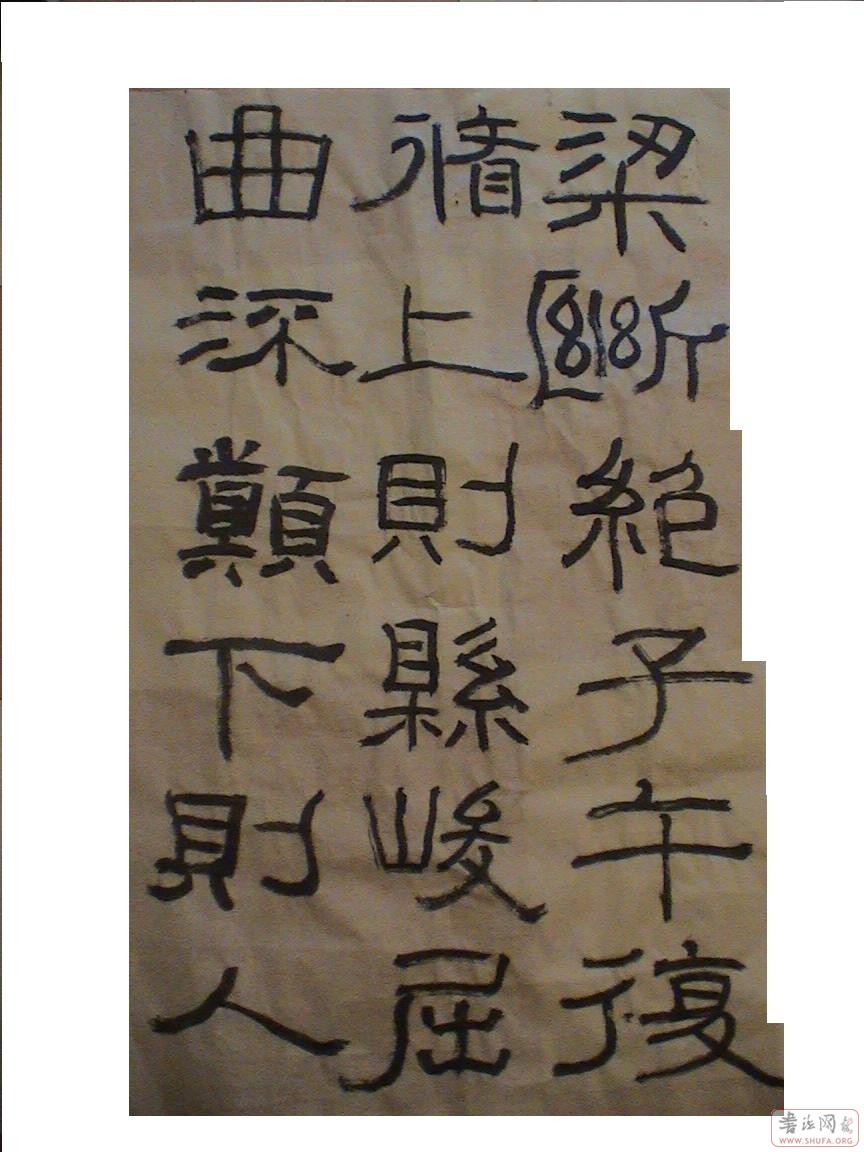 梁斷絶子午復
脩上則縣峻屈
曲深顛下則人
书法网
WWW.SHUFA.ORG